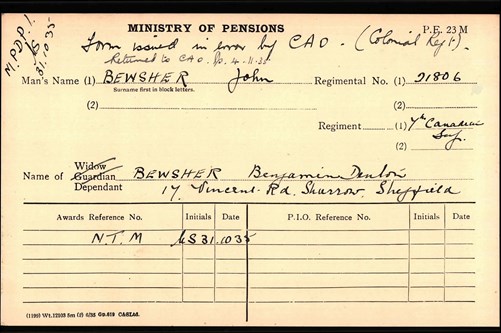 MINISTRY OF PENSIONS
P.E. 23 M
M.P.D.P.1.
31.10.35
Form issued in error by CAO. (Colonial Regt).
Returned to CAO. 4-11-35
Man's Name (1) BEWSHER John Regimental No. (1) 21806
Surname first in block letters.
(2) (2)
Regiment (1) 7th Canadian
Inf.
(2)
Widow
Name of Guardian BEWSHER Benjamin Denton
Dependant 17, Vincent Rd. Sharrow. Sheffield
Awards Reference No. Initials Date P.I.O. Reference No. Initials Date
N.T.M 31.10.35
(1190) Wt.12203 5m (2) 6/35 Gp.619 C&SLtd.